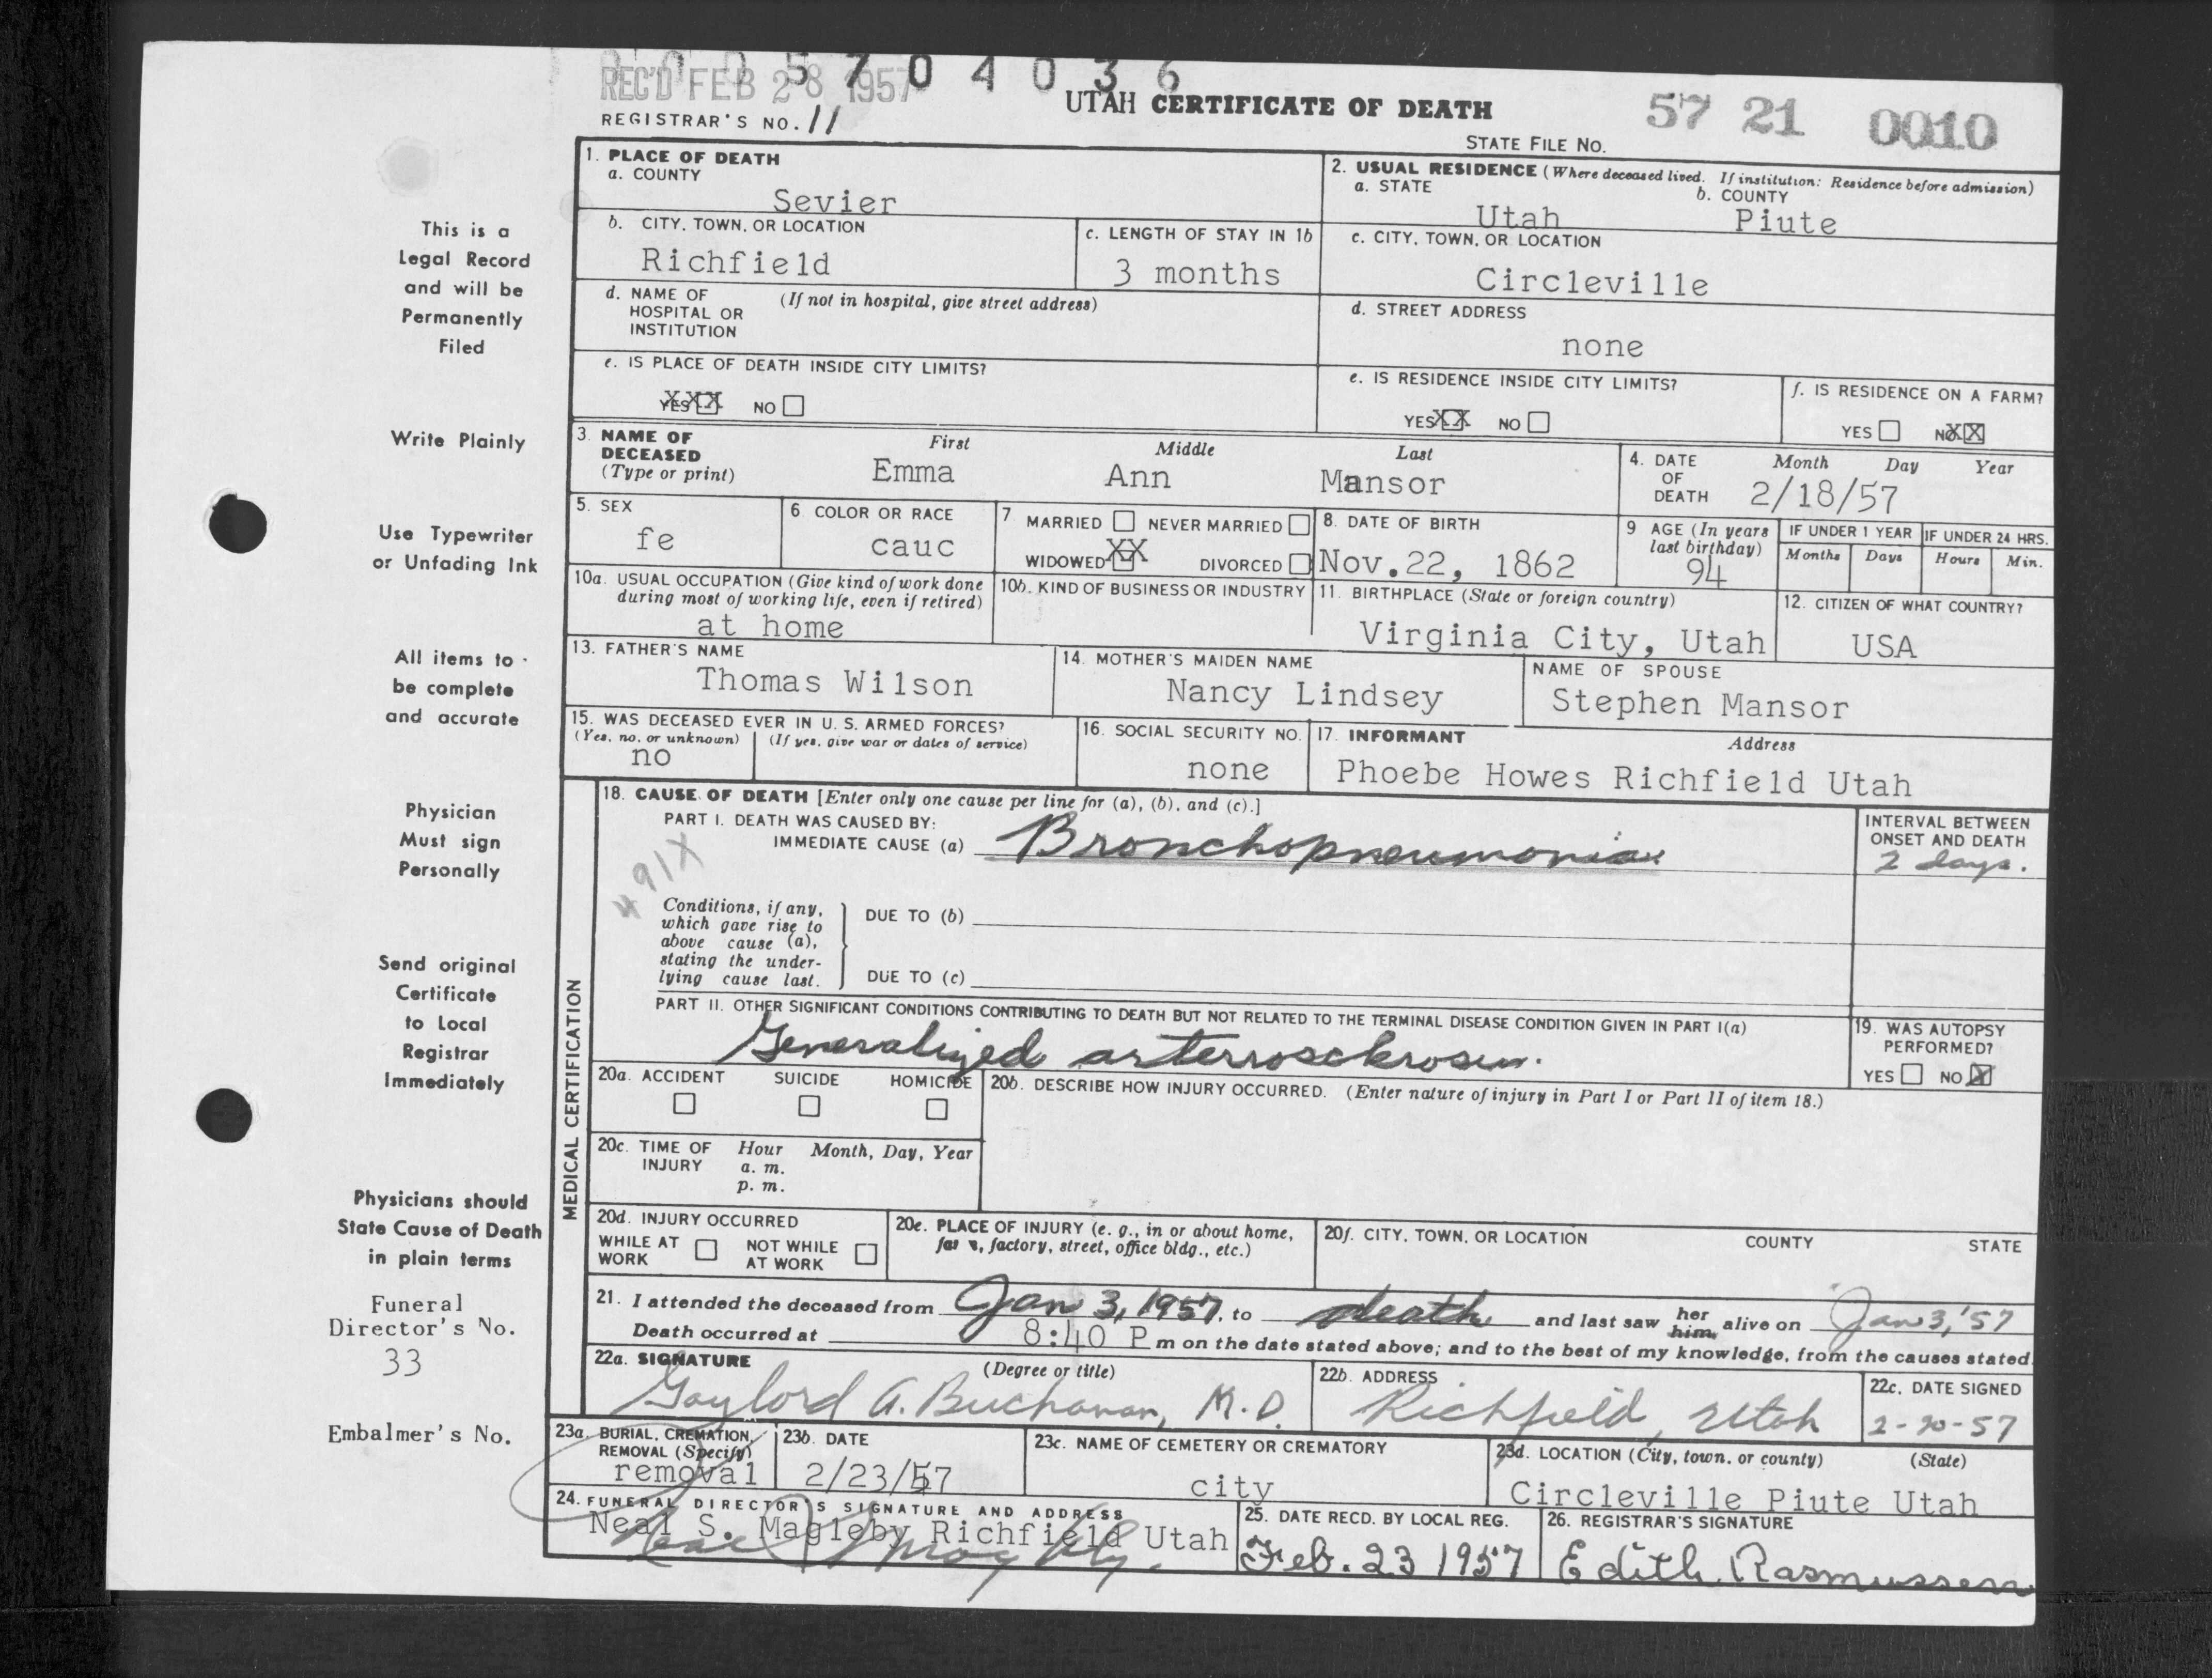 0 0 5 7 0 4 0 3 6
REC'D FEB 28 1957
REGISTRAR'S NO. 11
UTAH CERTIFICATE OF DEATH
57 21 0010
STATE FILE NO.
This is a
Legal Record
and will be
Permanently
Filed
Write Plainly
Use Typewriter
or Unfading Ink
All items to
be complete
and accurate
Physician
Must sign
Personally
Send original
Certificate
to Local
Registrar
Immediately
Physicians should
State Cause of Death
in plain terms
Funeral
Director's No.
33
Embalmer's No.
1. PLACE OF DEATH
a. COUNTY
Sevier
2. USUAL RESIDENCE (Where deceased lived. If institution: Residence before admission)
a. STATE b. COUNTY
Utah Piute
b. CITY, TOWN, OR LOCATION
Richfield
c. LENGTH OF STAY IN 1b
3 months
c. CITY, TOWN, OR LOCATION
Circleville
d. NAME OF (If not in hospital, give street address)
HOSPITAL OR
INSTITUTION
d. STREET ADDRESS
none
e. IS PLACE OF DEATH INSIDE CITY LIMITS?
YES XXX NO
e. IS RESIDENCE INSIDE CITY LIMITS?
YES XX NO
f. IS RESIDENCE ON A FARM?
YES NO XX
3. NAME OF DECEASED
(Type or print)
First Middle Last
Emma Ann Mansor
4. DATE OF DEATH
Month Day Year
2/18/57
5. SEX
fe
6 COLOR OR RACE
cauc
7 MARRIED NEVER MARRIED
WIDOWED XX DIVORCED
8. DATE OF BIRTH
Nov.22, 1862
9 AGE (In years
last birthday)
94
IF UNDER 1 YEAR IF UNDER 24 HRS.
Months Days Hours Min.
10a. USUAL OCCUPATION (Give kind of work done
during most of working life, even if retired)
at home
10b. KIND OF BUSINESS OR INDUSTRY
11. BIRTHPLACE (State or foreign country)
Virginia City, Utah
12. CITIZEN OF WHAT COUNTRY?
USA
13. FATHER'S NAME
Thomas Wilson
14. MOTHER'S MAIDEN NAME
Nancy Lindsey
NAME OF SPOUSE
Stephen Mansor
15. WAS DECEASED EVER IN U. S. ARMED FORCES?
(Yes, no, or unknown) (If yes, give war or dates of service)
no
16. SOCIAL SECURITY NO.
none
17. INFORMANT Address
Phoebe Howes Richfield Utah
MEDICAL CERTIFICATION
18. CAUSE OF DEATH [Enter only one cause per line for (a), (b), and (c).]
PART I. DEATH WAS CAUSED BY:
IMMEDIATE CAUSE (a) Bronchopneumonia
INTERVAL BETWEEN
ONSET AND DEATH
2 days.
491X
Conditions, if any,
which gave rise to
above cause (a),
stating the under-
lying cause last.
DUE TO (b)
DUE TO (c)
PART II. OTHER SIGNIFICANT CONDITIONS CONTRIBUTING TO DEATH BUT NOT RELATED TO THE TERMINAL DISEASE CONDITION GIVEN IN PART I(a)
Generalized arterrosclerosis.
19. WAS AUTOPSY
PERFORMED?
YES NO X
20a. ACCIDENT SUICIDE HOMICIDE
20b. DESCRIBE HOW INJURY OCCURRED. (Enter nature of injury in Part I or Part II of item 18.)
20c. TIME OF INJURY
Hour Month, Day, Year
a. m.
p. m.
20d. INJURY OCCURRED
WHILE AT WORK NOT WHILE AT WORK
20e. PLACE OF INJURY (e. g., in or about home,
farm, factory, street, office bldg., etc.)
20f. CITY, TOWN, OR LOCATION COUNTY STATE
21. I attended the deceased from Jan 3, 1957, to death and last saw her him alive on Jan 3, '57
Death occurred at 8:40 P m on the date stated above; and to the best of my knowledge, from the causes stated.
22a. SIGNATURE (Degree or title)
Gaylord A. Buchanan, M.D.
22b. ADDRESS
Richfield, Utah
22c. DATE SIGNED
2-20-57
23a. BURIAL, CREMATION,
REMOVAL (Specify)
removal
23b. DATE
2/23/57
23c. NAME OF CEMETERY OR CREMATORY
city
23d. LOCATION (City, town, or county) (State)
Circleville Piute Utah
24. FUNERAL DIRECTOR'S SIGNATURE AND ADDRESS
Neal S. Magleby Richfield Utah
Neal S Magleby
25. DATE RECD. BY LOCAL REG.
Feb. 23 1957
26. REGISTRAR'S SIGNATURE
Edith Rasmussen